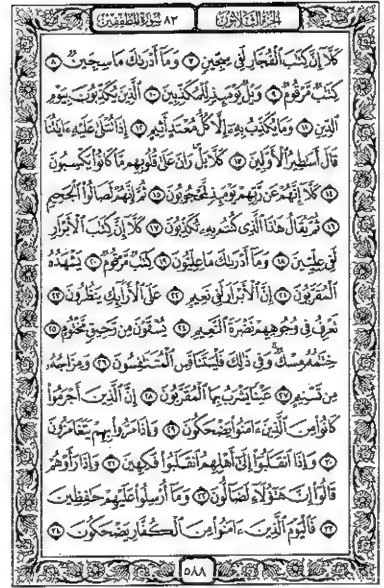 الجزء الثلاثون ٨٣ سورة المطففين
كَلَّا إِنَّ كِتَٰبَ ٱلْفُجَّارِ لَفِى سِجِّينٍ ٧ وَمَآ أَدْرَىٰكَ مَا سِجِّينٌ ٨
كِتَٰبٌ مَّرْقُومٌ ٩ وَيْلٌ يَوْمَئِذٍ لِّلْمُكَذِّبِينَ ١٠ ٱلَّذِينَ يُكَذِّبُونَ بِيَوْمِ
ٱلدِّينِ ١١ وَمَا يُكَذِّبُ بِهِۦٓ إِلَّا كُلُّ مُعْتَدٍ أَثِيمٍ ١٢ إِذَا تُتْلَىٰ عَلَيْهِ ءَايَٰتُنَا
قَالَ أَسَٰطِيرُ ٱلْأَوَّلِينَ ١٣ كَلَّا بَلْ رَانَ عَلَىٰ قُلُوبِهِم مَّا كَانُوا۟ يَكْسِبُونَ
١٤ كَلَّآ إِنَّهُمْ عَن رَّبِّهِمْ يَوْمَئِذٍ لَّمَحْجُوبُونَ ١٥ ثُمَّ إِنَّهُمْ لَصَالُوا۟ ٱلْجَحِيمِ
١٦ ثُمَّ يُقَالُ هَٰذَا ٱلَّذِى كُنتُم بِهِۦ تُكَذِّبُونَ ١٧ كَلَّآ إِنَّ كِتَٰبَ ٱلْأَبْرَارِ
لَفِى عِلِّيِّينَ ١٨ وَمَآ أَدْرَىٰكَ مَا عِلِّيُّونَ ١٩ كِتَٰبٌ مَّرْقُومٌ ٢٠ يَشْهَدُهُ
ٱلْمُقَرَّبُونَ ٢١ إِنَّ ٱلْأَبْرَارَ لَفِى نَعِيمٍ ٢٢ عَلَى ٱلْأَرَآئِكِ يَنظُرُونَ ٢٣
تَعْرِفُ فِى وُجُوهِهِمْ نَضْرَةَ ٱلنَّعِيمِ ٢٤ يُسْقَوْنَ مِن رَّحِيقٍ مَّخْتُومٍ ٢٥
خِتَٰمُهُۥ مِسْكٌ وَفِى ذَٰلِكَ فَلْيَتَنَافَسِ ٱلْمُتَنَٰفِسُونَ ٢٦ وَمِزَاجُهُۥ
مِن تَسْنِيمٍ ٢٧ عَيْنًا يَشْرَبُ بِهَا ٱلْمُقَرَّبُونَ ٢٨ إِنَّ ٱلَّذِينَ أَجْرَمُوا۟
كَانُوا۟ مِنَ ٱلَّذِينَ ءَامَنُوا۟ يَضْحَكُونَ ٢٩ وَإِذَا مَرُّوا۟ بِهِمْ يَتَغَامَزُونَ
٣٠ وَإِذَا ٱنقَلَبُوٓا۟ إِلَىٰٓ أَهْلِهِمُ ٱنقَلَبُوا۟ فَكِهِينَ ٣١ وَإِذَا رَأَوْهُمْ
قَالُوٓا۟ إِنَّ هَٰٓؤُلَآءِ لَضَآلُّونَ ٣٢ وَمَآ أُرْسِلُوا۟ عَلَيْهِمْ حَٰفِظِينَ
٣٣ فَٱلْيَوْمَ ٱلَّذِينَ ءَامَنُوا۟ مِنَ ٱلْكُفَّارِ يَضْحَكُونَ ٣٤
٥٨٨